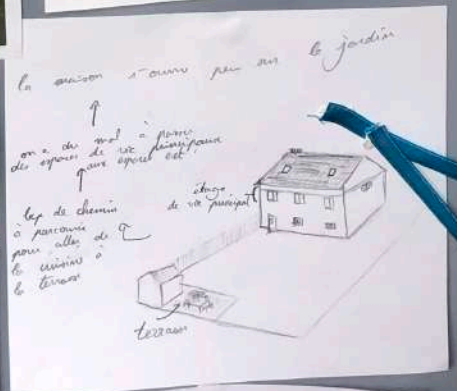 la maison s'ouvre peu sur le jardin
on a du mal à passer
des espaces de vie principaux
aux espaces ext.
bcp de chemin
à parcourir
pour aller de
la cuisine à
la terrasse
étage
de vie principal
terrasse